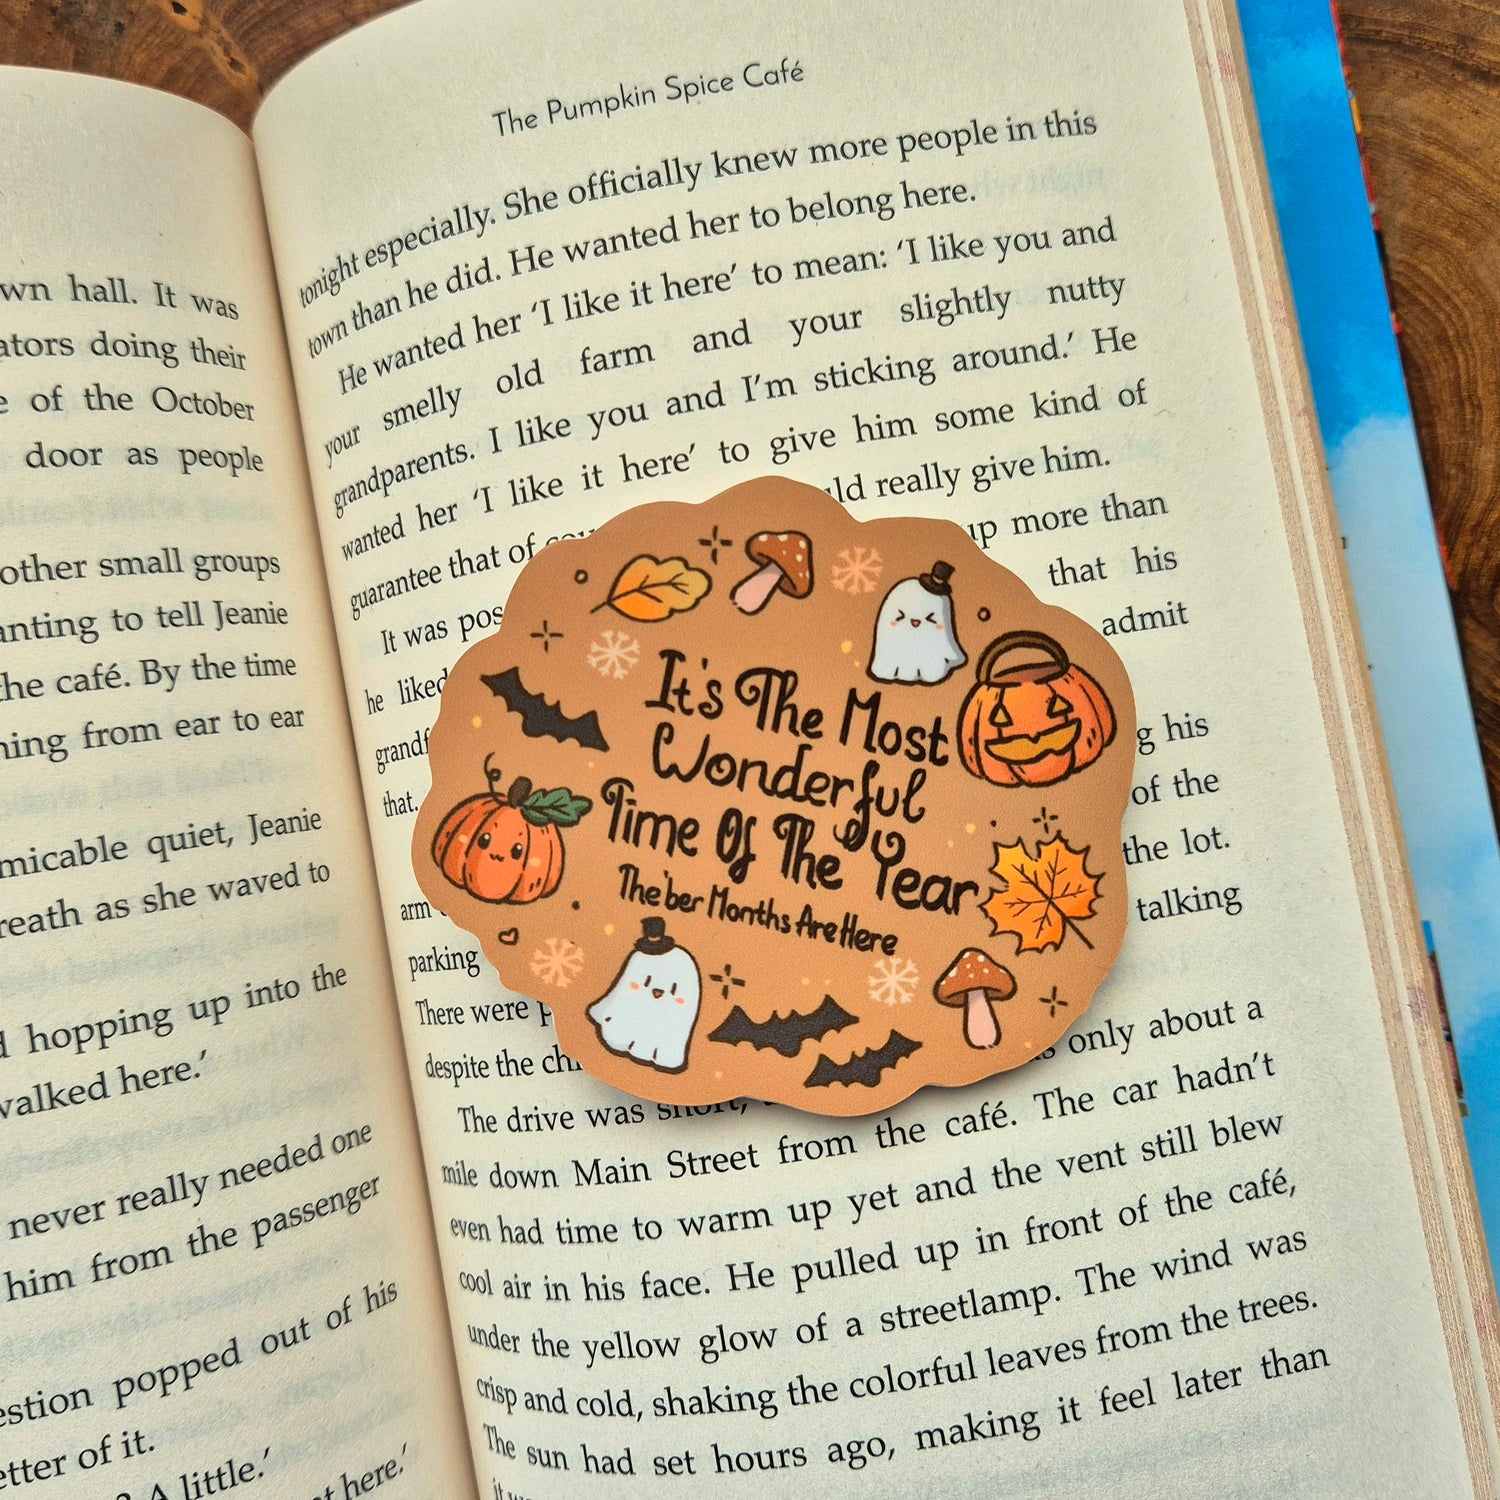 wn hall. It was
ators doing their
e of the October
door as people
other small groups
anting to tell Jeanie
the café. By the time
ning from ear to ear
micable quiet, Jeanie
reath as she waved to
d hopping up into the
walked here.’
never really needed one
him from the passenger
estion popped out of his
etter of it.
A little.’
t here.’
The Pumpkin Spice Café
tonight especially. She officially knew more people in this
town than he did. He wanted her to belong here.
He wanted her ‘I like it here’ to mean: ‘I like you and
your smelly old farm and your slightly nutty
grandparents. I like you and I’m sticking around.’ He
wanted her ‘I like it here’ to give him some kind of
guarantee that of ld really give him.
It was pos up more than
he liked that his
grandf admit
that.
g his
of the
arm the lot.
parking talking
There were p
despite the ch only about a
The drive was short,
mile down Main Street from the café. The car hadn’t
even had time to warm up yet and the vent still blew
cool air in his face. He pulled up in front of the café,
under the yellow glow of a streetlamp. The wind was
crisp and cold, shaking the colorful leaves from the trees.
The sun had set hours ago, making it feel later than
It's The Most
Wonderful
Time Of The Year
The 'ber Months Are Here